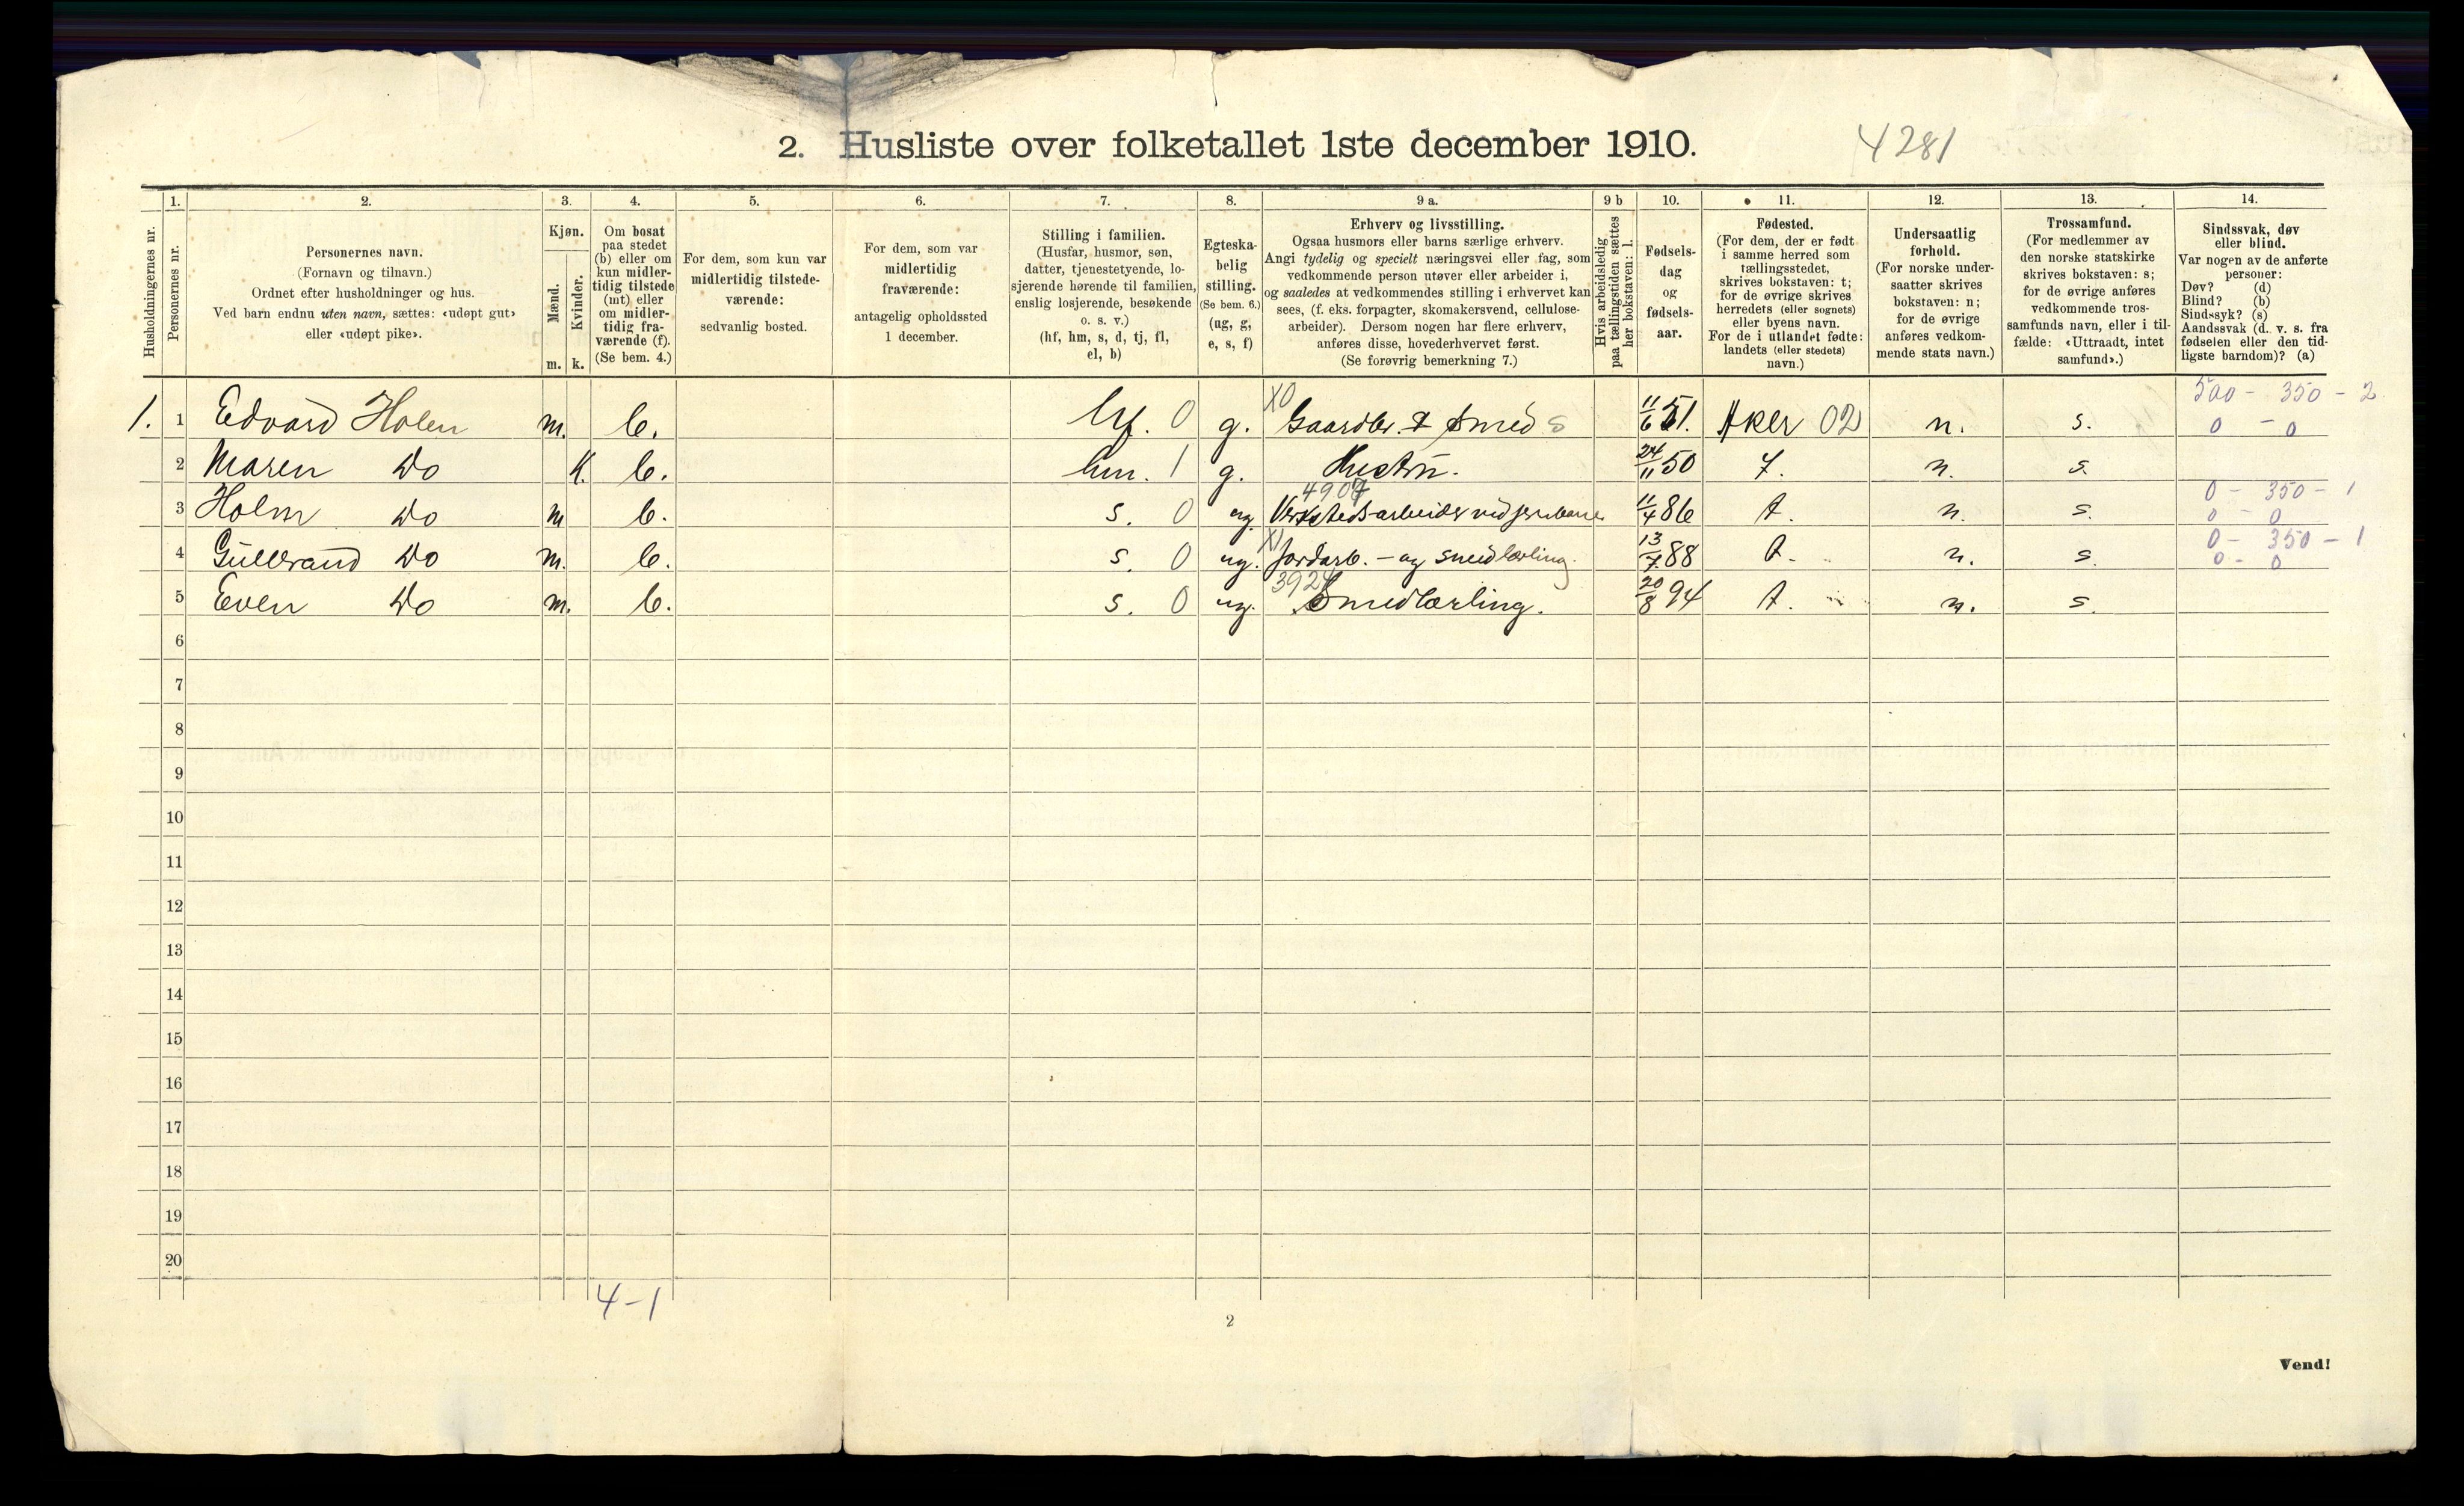 2. Husliste over folketallet 1ste december 1910. 4281
1. 2. 3. 4. 5. 6. 7. 8. 9 a. 9 b 10. 11. 12. 13. 14.
Husholdningernes nr.
Personernes nr.
Personernes navn.
(Fornavn og tilnavn.)
Ordnet efter husholdninger og hus.
Ved barn endnu uten navn, sættes: «udøpt gut»
eller «udøpt pike».
Kjøn.
Mænd.
Kvinder.
m. k.
Om bosat
paa stedet
(b) eller om
kun midler-
tidig tilstede
(mt) eller
om midler-
tidig fra-
værende (f).
(Se bem. 4.)
For dem, som kun var
midlertidig tilstede-
værende:
sedvanlig bosted.
For dem, som var
midlertidig
fraværende:
antagelig opholdssted
1 december.
Stilling i familien.
(Husfar, husmor, søn,
datter, tjenestetyende, lo-
sjerende hørende til familien,
enslig losjerende, besøkende
o. s. v.)
(hf, hm, s, d, tj, fl,
el, b)
Egteska-
belig
stilling.
(Se bem. 6.)
(ug, g,
e, s, f)
Erhverv og livsstilling.
Ogsaa husmors eller barns særlige erhverv.
Angi tydelig og specielt næringsvei eller fag, som
vedkommende person utøver eller arbeider i,
og saaledes at vedkommendes stilling i erhvervet kan
sees, (f. eks. forpagter, skomakersvend, cellulose-
arbeider). Dersom nogen har flere erhverv,
anføres disse, hovederhvervet først.
(Se forøvrig bemerkning 7.)
Hvis arbeidsledig
paa tællingstiden sættes
her bokstaven: l.
Fødsels-
dag
og
fødsels-
aar.
Fødested.
(For dem, der er født
i samme herred som
tællingsstedet,
skrives bokstaven: t;
for de øvrige skrives
herredets (eller sognets)
eller byens navn.
For de i utlandet fødte:
landets (eller stedets)
navn.)
Undersaatlig
forhold.
(For norske under-
saatter skrives
bokstaven: n;
for de øvrige
anføres vedkom-
mende stats navn.)
Trossamfund.
(For medlemmer av
den norske statskirke
skrives bokstaven: s;
for de øvrige anføres
vedkommende tros-
samfunds navn, eller i til-
fælde: «Uttraadt, intet
samfund».)
Sindssvak, døv
eller blind.
Var nogen av de anførte
personer:
Døv? (d)
Blind? (b)
Sindssyk? (s)
Aandssvak (d. v. s. fra
fødselen eller den tid-
ligste barndom)? (a)
X0 500 - 350 - 2
1. 1 Edvard Holen m. b. hf. 0 g. Gaardbr. & Smed s 11/6 51. Aker 02 n. s. 0 - 0
2 Maren Do K. b. hm. 1 g. Hustru. 24/11 50 n. s.
4907 0 - 350 - 1
3 Holm Do m b. s. 0 ug. Verkstedsarbeider ved jernbane 11/4 86 t. n. s. 0 - 0
0 - 350 - 1
4 Gulbrand Do m. b. s. 0 ug. Jordarb. - og smedlærling. 13/7 88 t. n. s. 0 - 0
3924
5 Even Do m. b. s. 0 ug. Smedlærling. 20/8 94 t. n. s.
6
7
8
9
10
11
12
13
14
15
16
17
18
19
20
4-1
2
Vend!